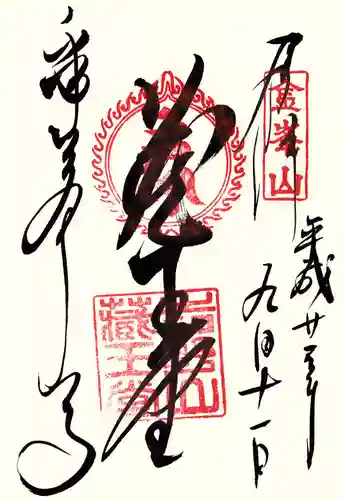 奉拝
金峯山
平成廿三年
九月十一日
蔵王堂
金峯山
蔵王堂
金峯山寺